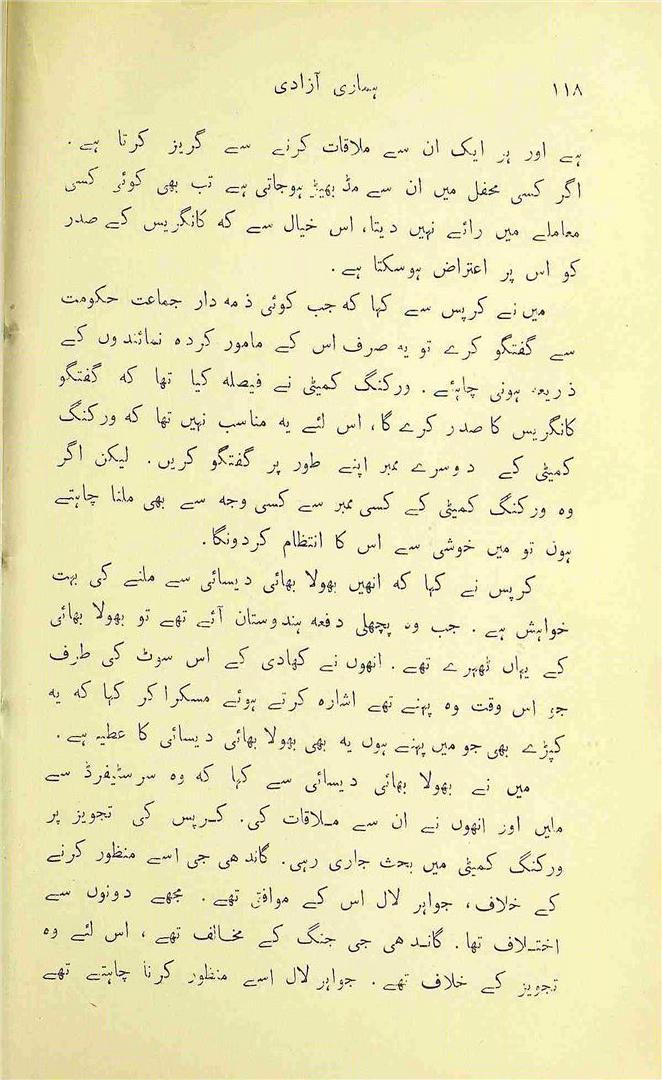 ۱۱۸ ہماری آزادی
ہے اور ہر ایک ان سے ملاقات کرنے سے گریز کرتا ہے ۔
اگر کسی محفل میں ان سے مڈ بھیڑ ہوجاتی ہے تب بھی کوئی کسی
معاملے میں رائے نہیں دیتا، اس خیال سے کہ کانگریس کے صدر
کو اس پر اعتراض ہوسکتا ہے ۔
میں نے کرپس سے کہا کہ جب کوئی ذمہ دار جماعت حکومت
سے گفتگو کرے تو یہ صرف اس کے مامور کردہ نمائندوں کے
ذریعہ ہونی چاہئے ۔ ورکنگ کمیٹی نے فیصلہ کیا تھا کہ گفتگو
کانگریس کا صدر کرے گا، اس لئے یہ مناسب نہیں تھا کہ ورکنگ
کمیٹی کے دوسرے ممبر اپنے طور پر گفتگو کریں ۔ لیکن اگر
وہ ورکنگ کمیٹی کے کسی ممبر سے کسی وجہ سے بھی ملنا چاہتے
ہوں تو میں خوشی سے اس کا انتظام کردونگا ۔
کرپس نے کہا کہ انھیں بھولا بھائی دیسائی سے ملنے کی بہت
خواہش ہے ۔ جب وہ پچھلی دفعہ ہندوستان آئے تھے تو بھولا بھائی
کے یہاں ٹھہرے تھے ۔ انھوں نے کھادی کے اس سوٹ کی طرف
جو اس وقت وہ پہنے تھے اشارہ کرتے ہوئے مسکرا کر کہا کہ یہ
کپڑے بھی جو میں پہنے ہوں یہ بھی بھولا بھائی دیسائی کا عطیہ ہے ۔
میں نے بھولا بھائی دیسائی سے کہا کہ وہ سر سٹیفرڈ سے
ملیں اور انھوں نے ان سے ملاقات کی ۔ کرپس کی تجویز پر
ورکنگ کمیٹی میں بحث جاری رہی ۔ گاندھی جی اسے منظور کرنے
کے خلاف، جواہر لال اس کے موافق تھے ۔ مجھے دونوں سے
اختلاف تھا ۔ گاندھی جی جنگ کے مخالف تھے ، اس لئے وہ
تجویز کے خلاف تھے ۔ جواہر لال اسے منظور کرنا چاہتے تھے